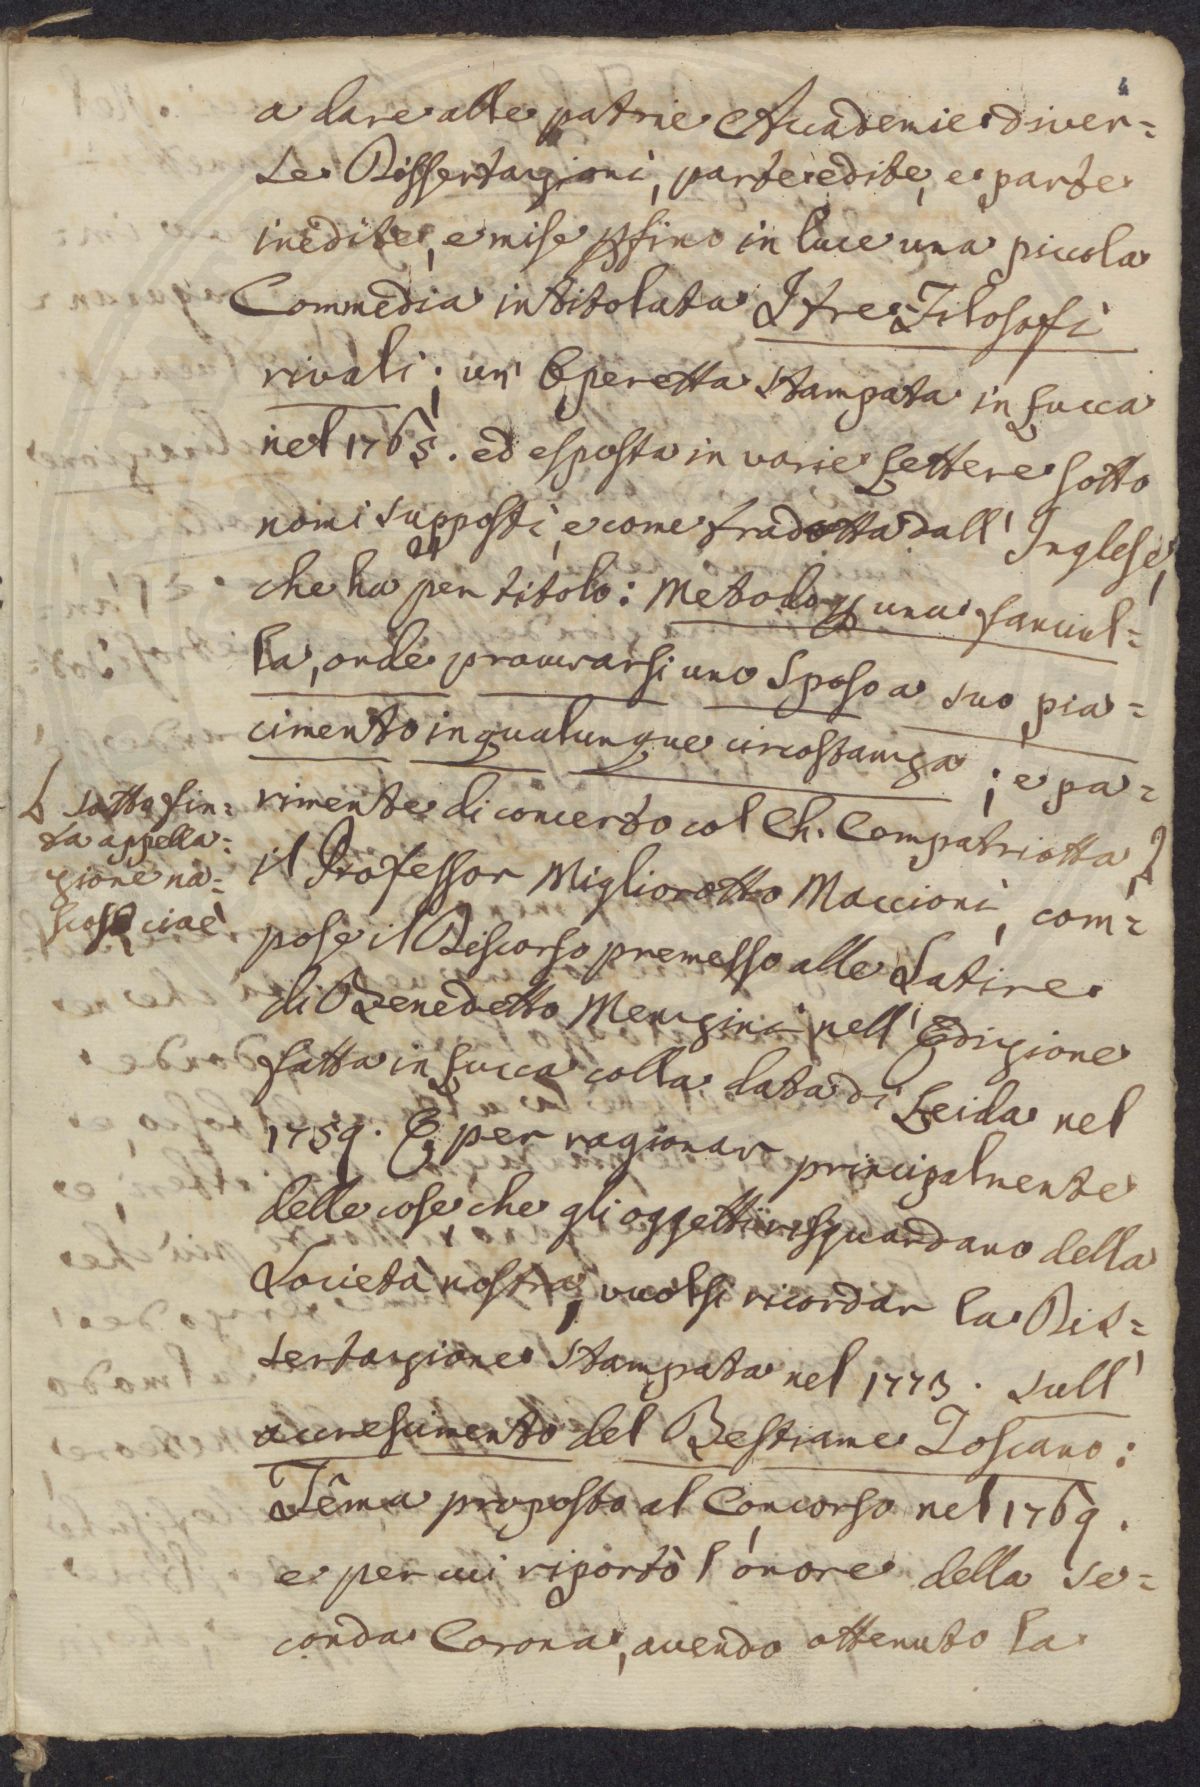 4
a dare alle patrie Accademie diver=
se Dissertazioni, parte edite, e parte
inedite, e mise pfino in luce una piccola
Commedia intitolata I tre Filosofi
rivali; un' Operetta stampata in Lucca
nel 1765. ed esposta in varie Lettere sotto
nomi supposti, e come tradotta dall' Inglese,
che ha per titolo: Metodo p una fanciul=
la, onde procurarsi uno Sposo a suo pia=
cimento in qualunque circostanza; e pa=
rimente di concerto col Ch. Compatriotta,
sotto fin=
ta appella=
zione na=
scose cioè
il Professor Migliorotto Maccioni, com=
pose il Discorso premesso alle Satire
di Benedetto Menzini nell' Edizione
fatta in Lucca colla data di Leida nel
1759. E per ragionar principalmente
delle cose che gli oggetti risguardano della
Società nostra, vuolsi ricordar la Dis=
sertazione stampata nel 1773. sull'
accrescimento del Bestiame Toscano:
Têma proposto al Concorso nel 1769.
e per cui riportò l'onore della se=
conda Corona, avendo ottenuto la